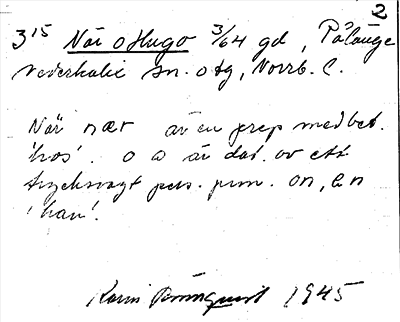 2
3¹⁵ När o Hugo 3/64 gd, Pålänge
Nederkalix sn. o tg, Norrb. l.
När nær är en prep med bet.
'hos'. o a är dat. av ett
trycksvagt pers. pron. on, an
'han'.
Karin 1945